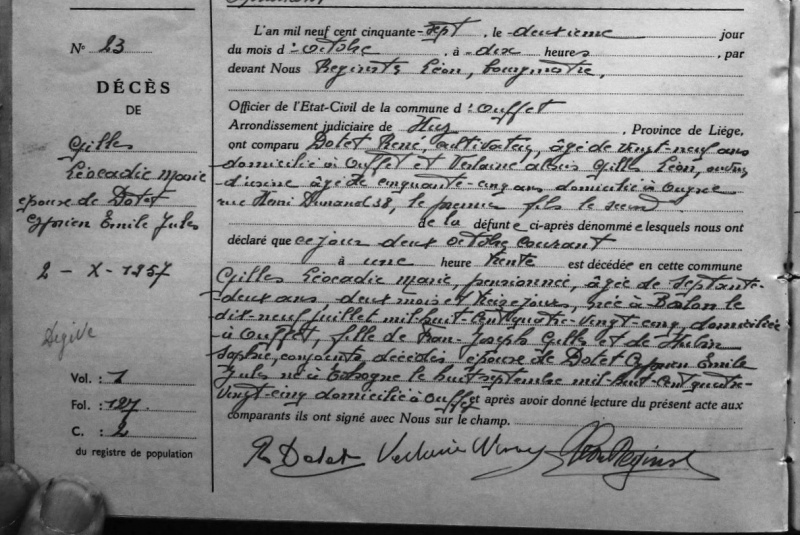 N° 23
DÉCÈS
DE
Gilles
Léocadie Marie
épouse de Dotet
Cyprien Emile Jules
2 - X - 1957
Vol. : 1
Fol. : 127.
C. : 2
du registre de population
L'an mil neuf cent cinquante-sept, le deuxième jour
du mois d'octobre, à dix heures, par
devant Nous Reginster Léon, bourgmestre,
Officier de l'Etat-Civil de la commune d'Ouffet
Arrondissement judiciaire de Huy, Province de Liége,
ont comparu Dotet René, cultivateur, âgé de vingt-neuf ans
domicilié à Ouffet et Verlaine Gilles Léon, ouvrier
d'usine âgé de cinquante-cinq ans domicilié à Ougrée
rue Henri Dunand 38, le premier fils le second
de la défunte ci-après dénommée lesquels nous ont
déclaré que ce jour deux octobre courant
à une heure trente est décédée en cette commune
Gilles Léocadie Marie, pensionnée, âgée de septante-
deux ans, deux mois et treize jours, née à le
dix-neuf juillet mil-huit-cent-quatre-vingt-cinq, domiciliée
à Ouffet, fille de Joseph Gilles et de Hubin
Sophie, conjoints, décédés épouse de Dotet Cyprien Emile
Jules né à le huit septembre mil-huit-cent-quatre-
vingt-cinq domicilié à Ouffet et après avoir donné lecture du présent acte aux
comparants ils ont signé avec Nous sur le champ.
R Dotet Verlaine Reginster